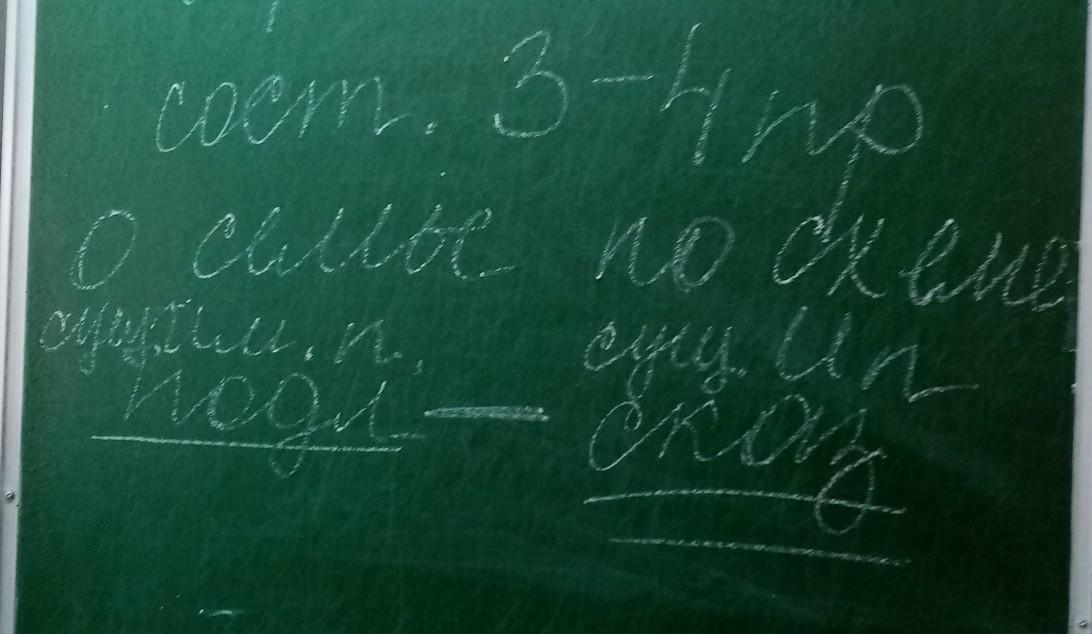 сост. 3-4 пр
о семье по схеме
сущ. им. п. сущ. И п
подл. — сказ